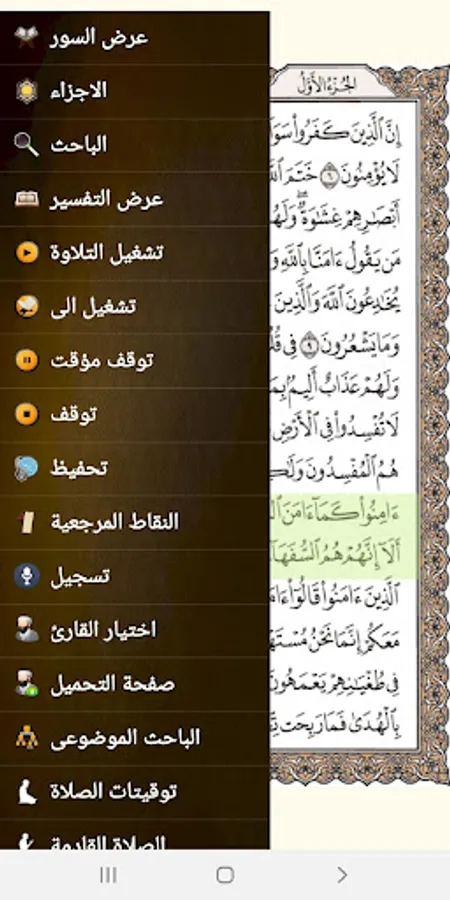 عرض السور
الاجزاء
الباحث
عرض التفسير
تشغيل التلاوة
تشغيل الى
توقف مؤقت
توقف
تحفيظ
النقاط المرجعية
تسجيل
اختيار القارئ
صفحة التحميل
الباحث الموضوعى
توقيتات الصلاة
الصلاة القادمة
الجزء الأول
إِنَّ ٱلَّذِينَ كَفَرُواْ
لَا يُؤْمِنُونَ ٦ خَتَمَ
أَبْصَٰرِهِمْ غِشَٰوَةٌۖ
مَن يَقُولُ ءَامَنَّا بِٱللَّهِ
يُخَٰدِعُونَ ٱللَّهَ وَٱلَّذِينَ
وَمَا يَشْعُرُونَ ٩ فِي
وَلَهُمْ عَذَابٌ أَلِيمُۢ
لَا تُفْسِدُواْ فِي ٱلْأَرْضِ
هُمُ ٱلْمُفْسِدُونَ
ءَامِنُواْ كَمَآ ءَامَنَ
أَلَآ إِنَّهُمْ هُمُ
ٱلَّذِينَ ءَامَنُواْ قَالُوٓاْ
مَعَكُمْ إِنَّمَا نَحْنُ
فِي طُغْيَٰنِهِمْ يَعْمَهُونَ
بِٱلْهُدَىٰ فَمَا رَبِحَت